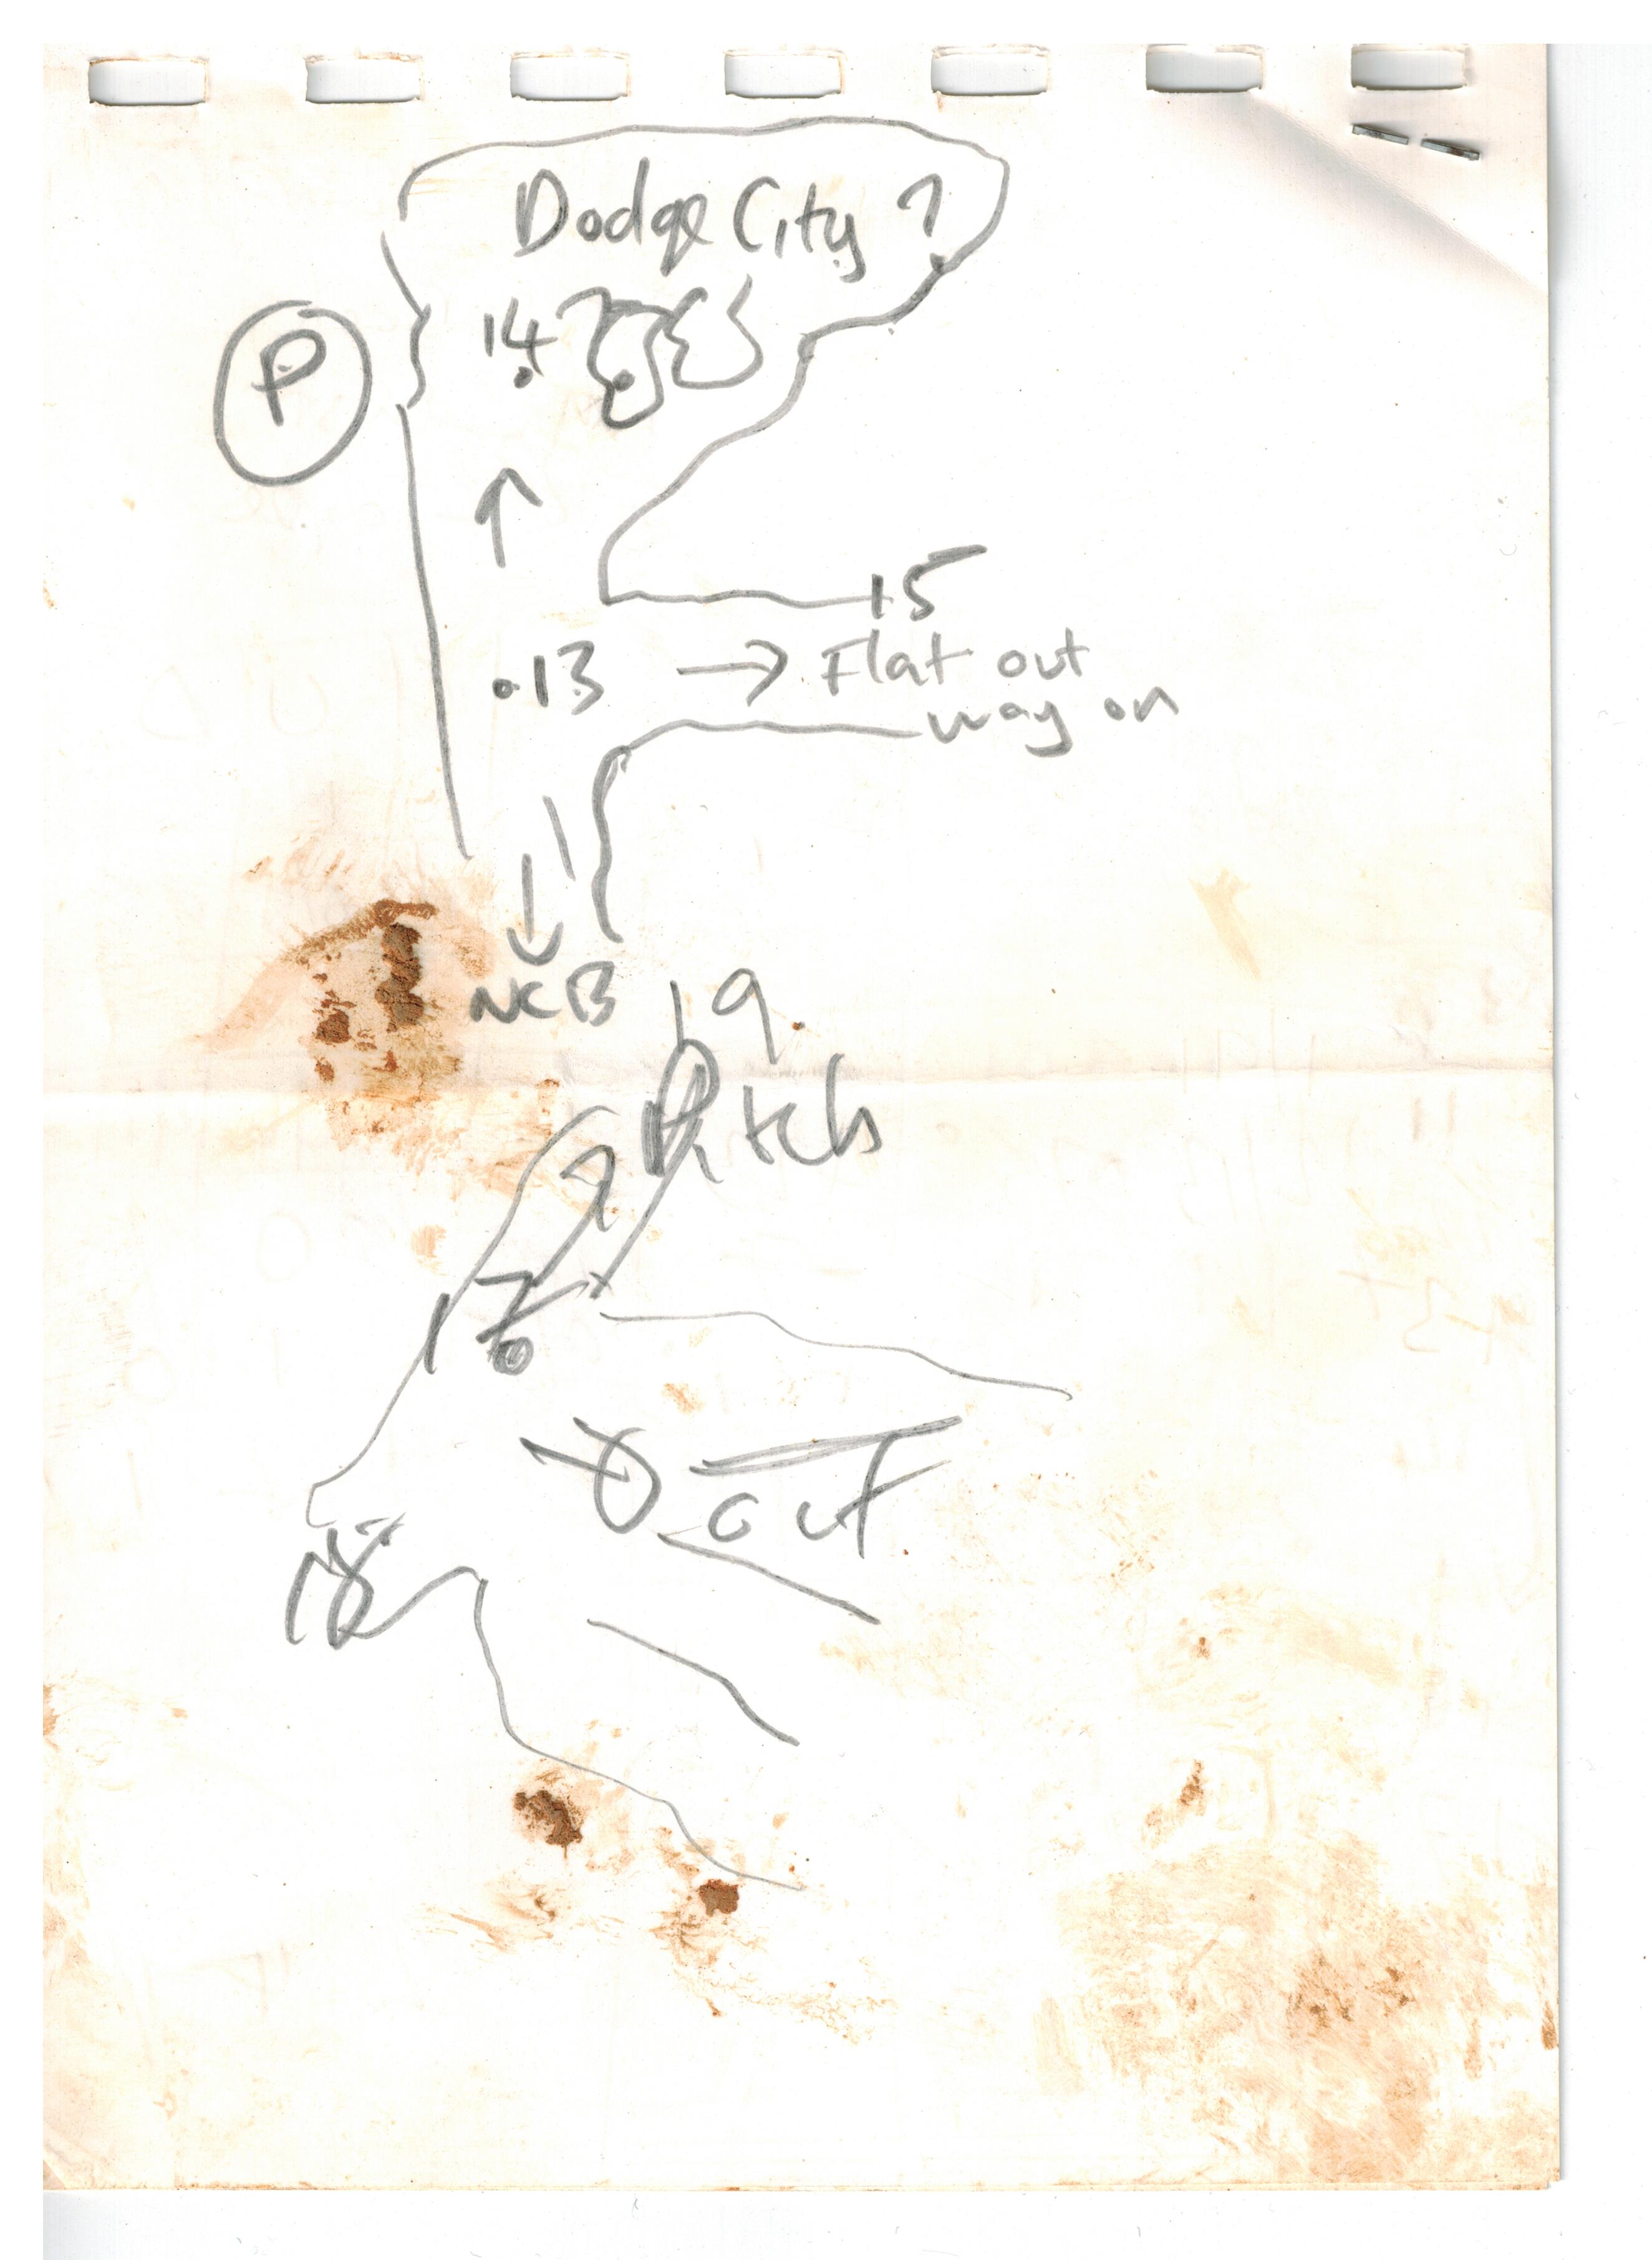 Dodge City ?
P
14
15
.13 → Flat out
way on
NCB
19
Pitch
out
18